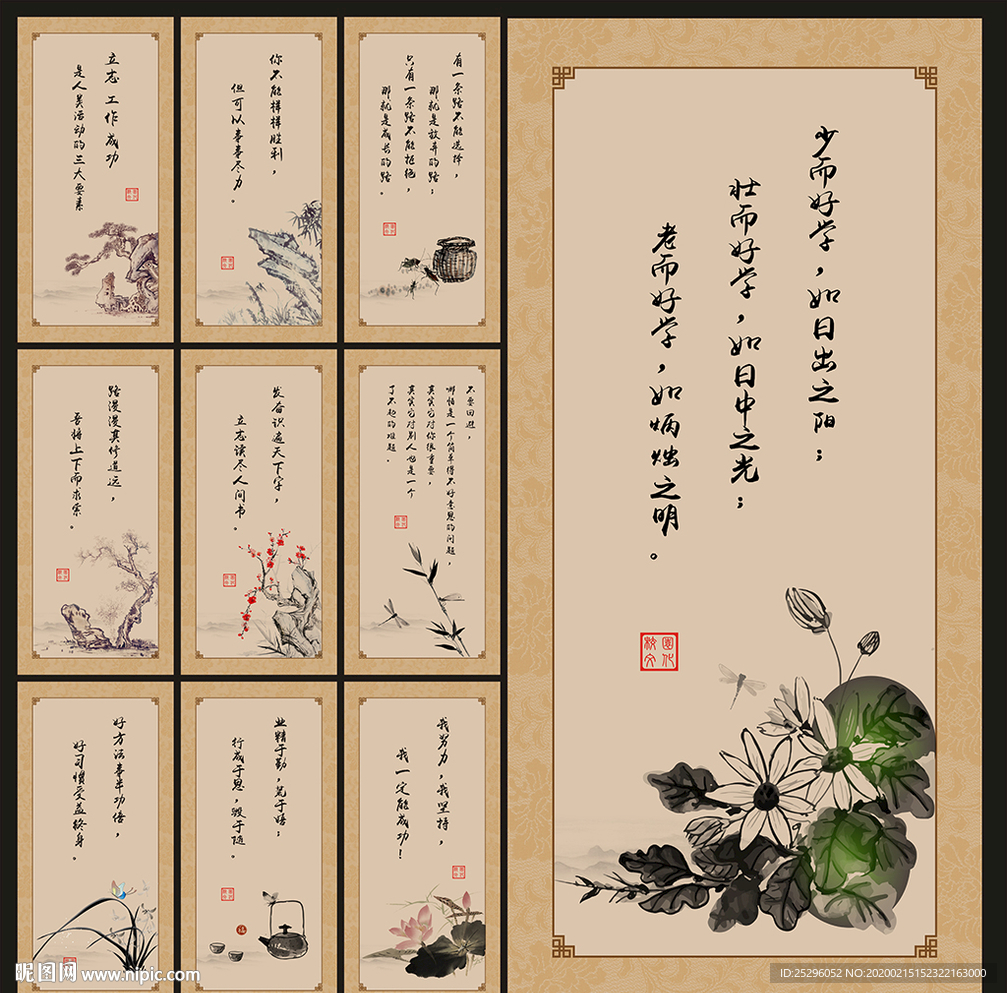 立志 工作 成功
是人类活动的三大要素
你不能样样胜利，
但可以事事尽力。
有一条路不能选择，
那就是放弃的路；
只有一条路不能拒绝，
那就是成长的路。
路漫漫其修道远，
吾将上下而求索。
发奋识遍天下字，
立志读尽人间书。
不要回避，
哪怕是一个简单得不好意思的问题，
其实它对你很重要，
其实它对别人也是一个
了不起的难题。
好方法事半功倍，
好习惯受益终身。
业精于勤，荒于嬉；
行成于思，毁于随。
我努力，我坚持，
我一定能成功！
少而好学，如日出之阳；
壮而好学，如日中之光；
老而好学，如炳烛之明。
校園
文化
昵图网 www.nipic.com
ID:25296052 NO:20200215152322163000